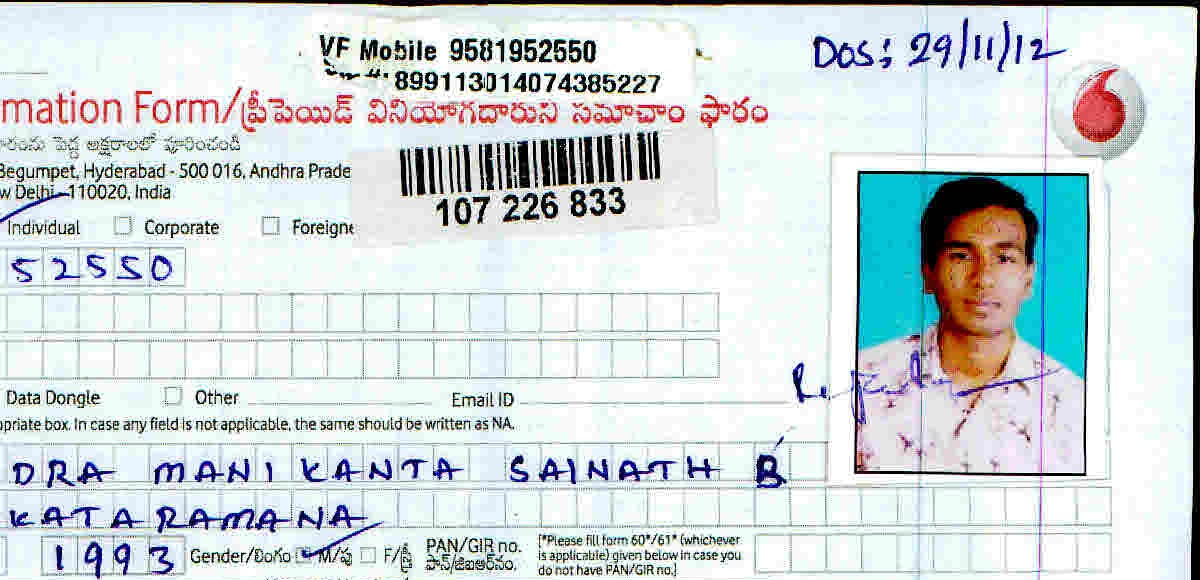 VF Mobile 9581952550
DOS: 29/11/12
899113014074385227
mation Form/ప్రీపెయిడ్ వినియోగదారుని సమాచాం ఫారం
పెద్ద అక్షరాలలో పూరించండి
Begumpet, Hyderabad - 500 016, Andhra Prade
w Delhi - 110020, India
107 226 833
Individual Corporate Foreigne
52550
Data Dongle Other Email ID
opriate box. In case any field is not applicable, the same should be written as NA.
DRA MANIKANTA SAINATH B
KATARAMANA
1993 Gender/లింగం M/పు F/స్త్రీ PAN/GIR no. [*Please fill form 60*/61* (whichever
is applicable) given below in case you
do not have PAN/GIR no.]